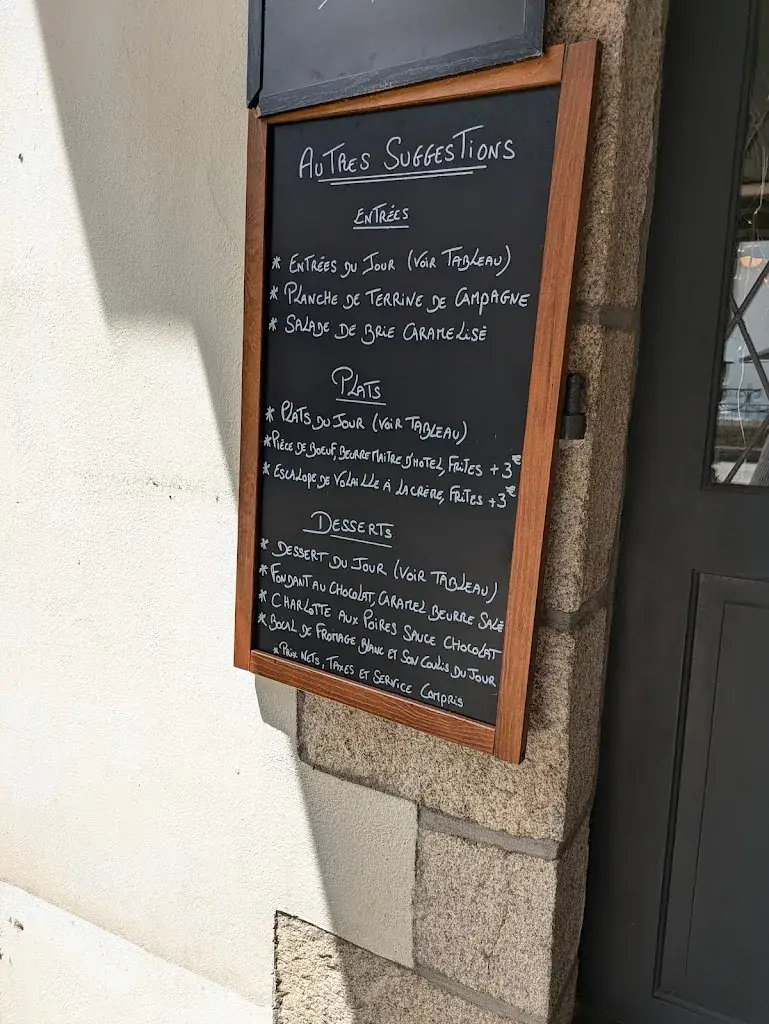 AUTRES SUGGESTIONS
ENTRÉES
* ENTRÉES DU JOUR (VOIR TABLEAU)
* PLANCHE DE TERRINE DE CAMPAGNE
* SALADE DE BRIE CARAMELISÉ
PLATS
* PLATS DU JOUR (VOIR TABLEAU)
* PIÈCE DE BOEUF, BEURRE MAITRE D'HOTEL, FRITES +3€
* ESCALOPE DE VOLAILLE À LA CRÈRE, FRITES +3€
DESSERTS
* DESSERT DU JOUR (VOIR TABLEAU)
* FONDANT AU CHOCOLAT, CARAMEL BEURRE SALÉ
* CHARLOTTE AUX POIRES SAUCE CHOCOLAT
* BOCAL DE FROMAGE BLANC ET SON COULIS DU JOUR
* PRIX NETS, TAXES ET SERVICE COMPRIS